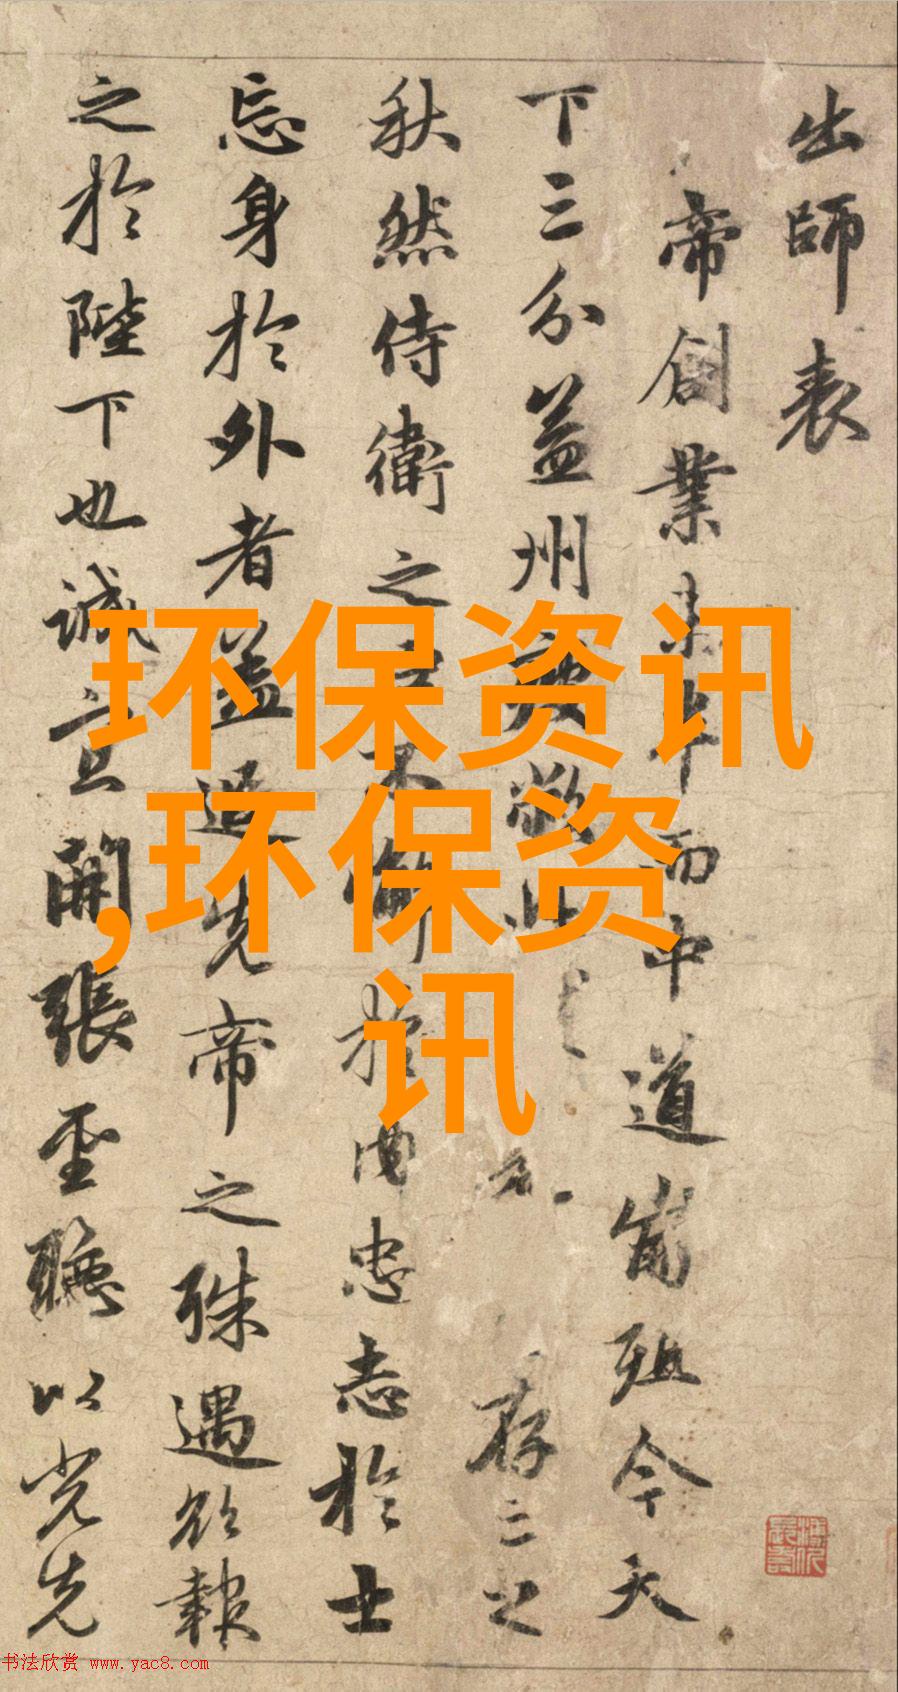 出師表
帝創業未半而中道崩殂今天
下三分益州疲敝此存亡之
秋然侍衛之臣不懈於内忠志於士
忘身於外者蓋追先帝之殊遇欲報
之於陛下也誠宜開張聖聽以光先
环保资讯
,环保资
讯
书法欣赏 www.yac8.com